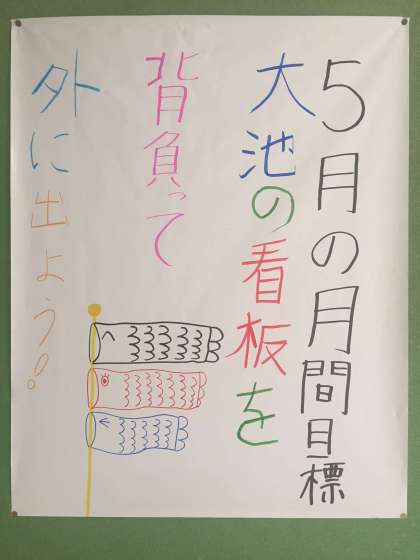 5月の月間目標
大池の看板を
背負って
外に出よう!!